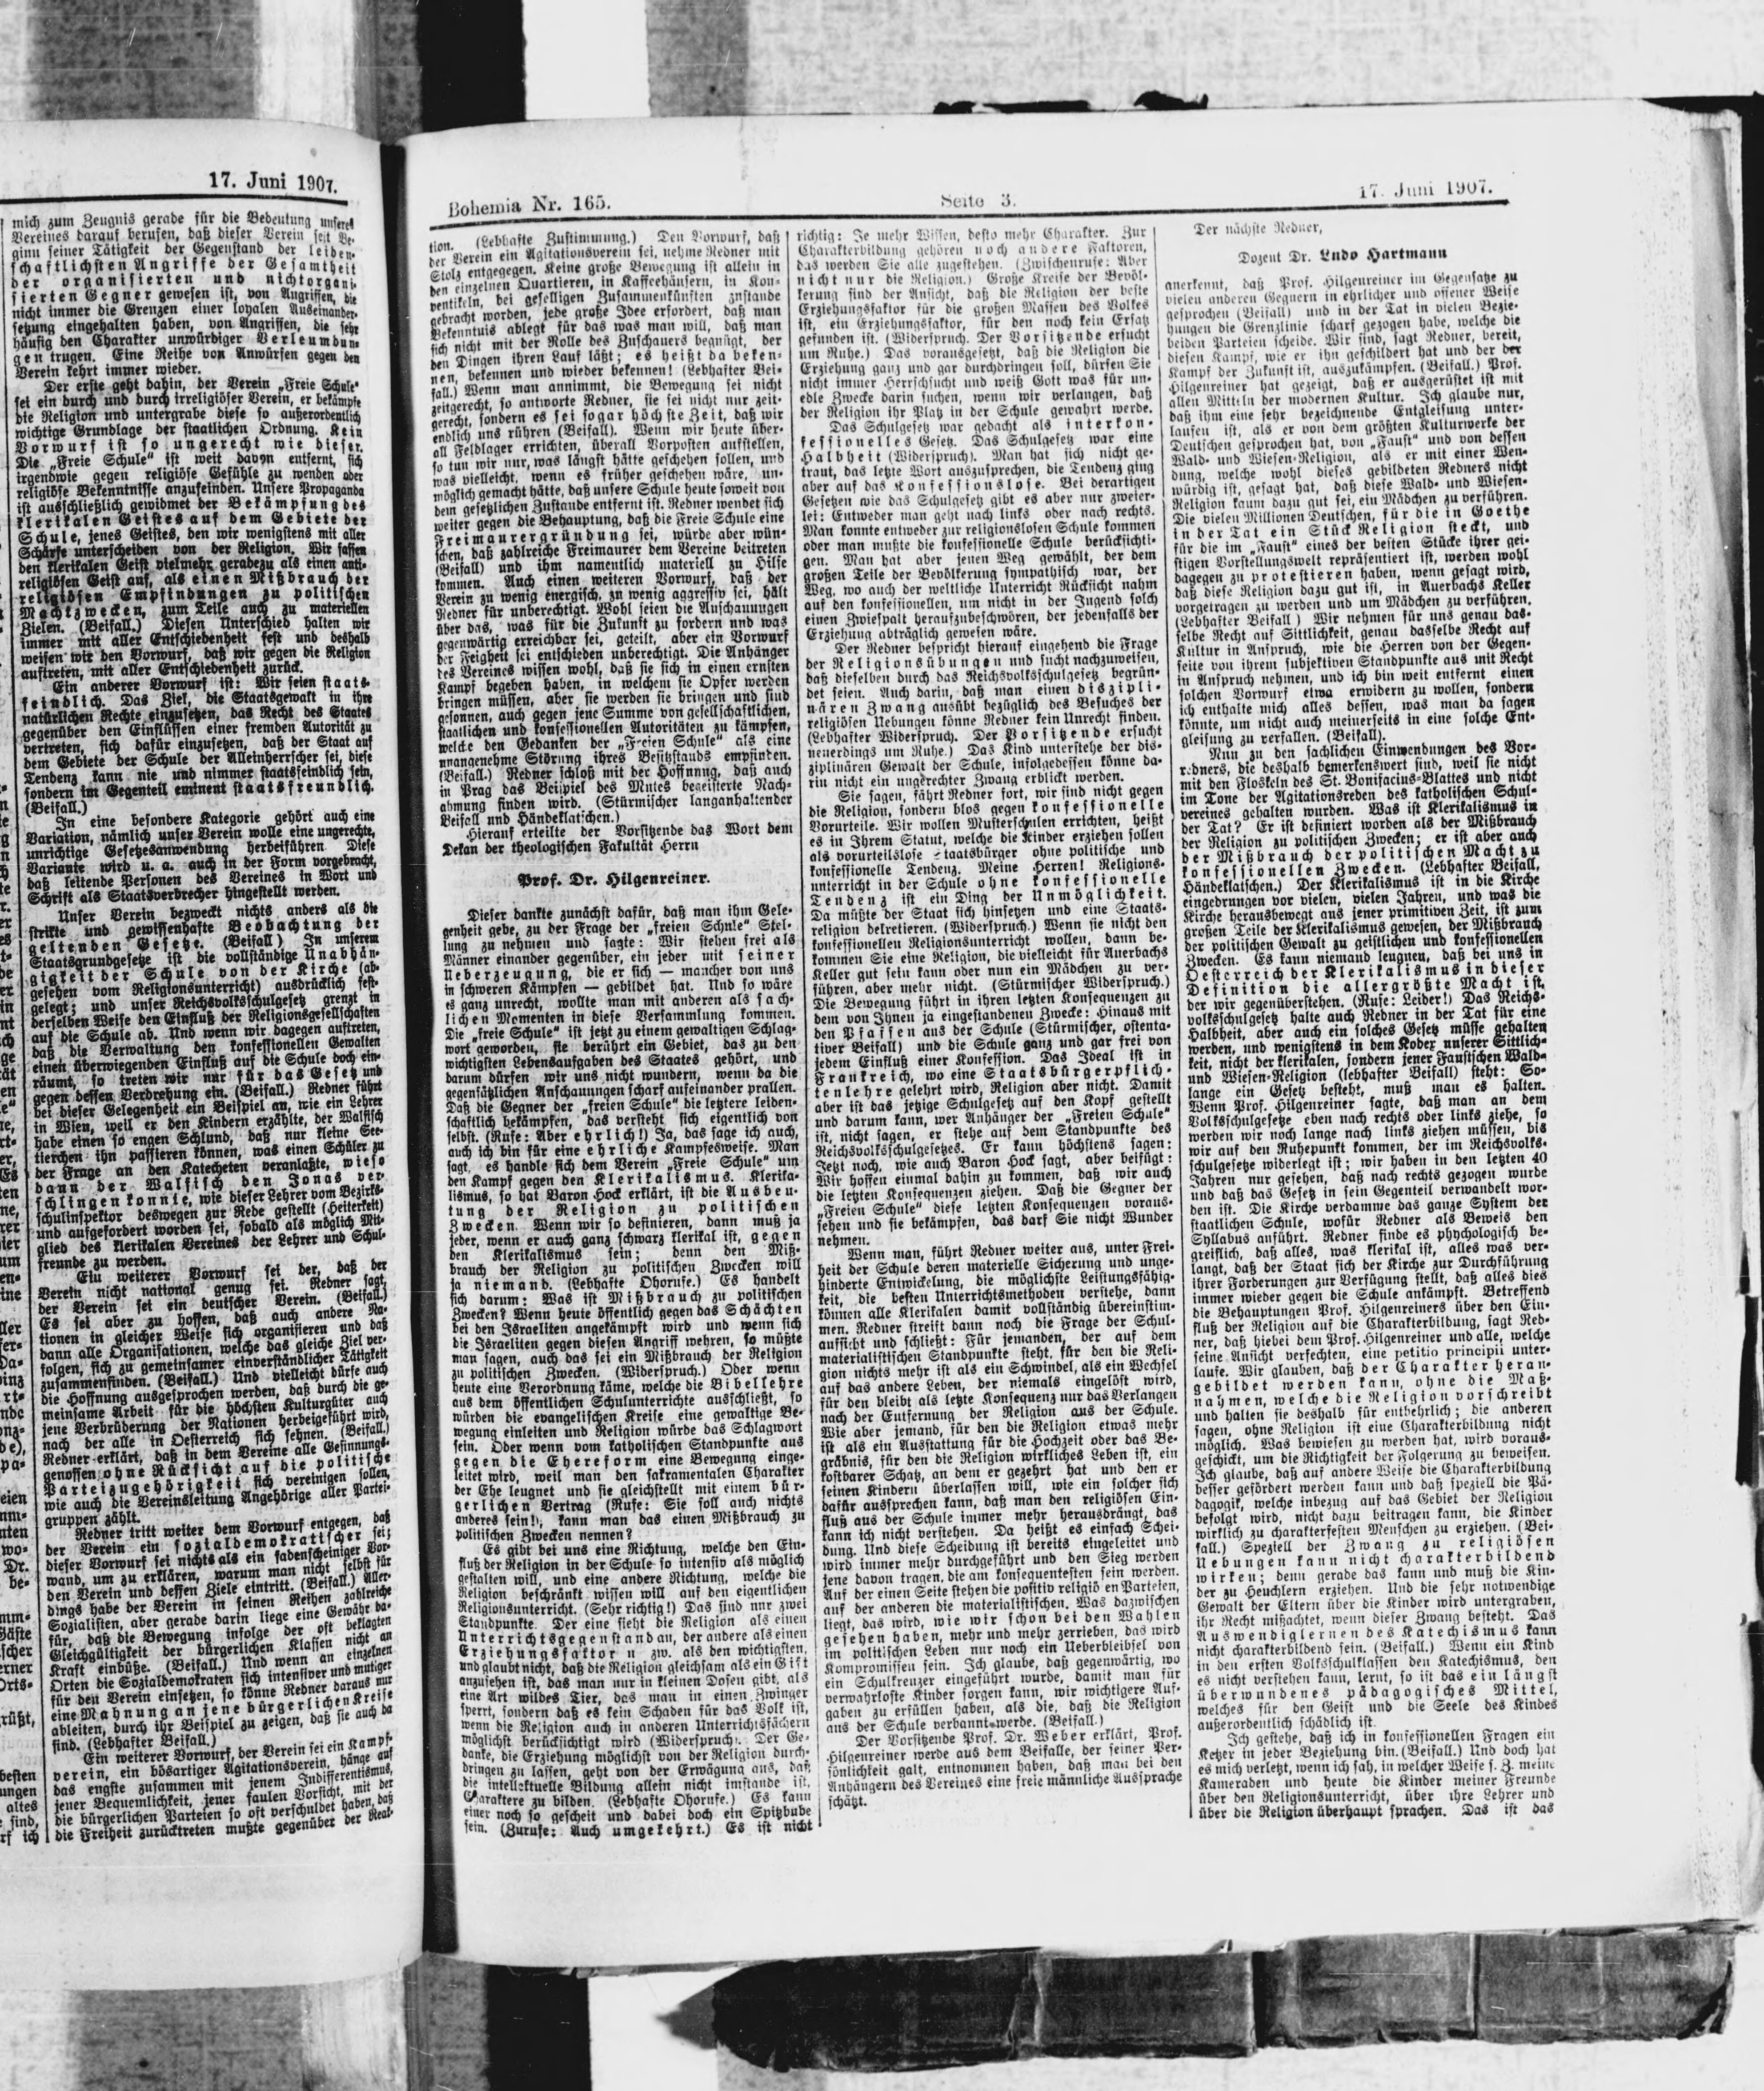 17. Juni 1907.
mich zum Zeugnis gerade für die Bedeutung unseres
Vereines darauf berufen, daß dieser Verein seit Be-
ginn seiner Tätigkeit der Gegenstand der leiden-
schaftlichsten Angriffe der Gesamtheit
der organisierten und nichtorgani-
sierten Gegner gewesen ist, von Angriffen, die
nicht immer die Grenzen einer loyalen Auseinander-
setzung eingehalten haben, von Angriffen, die sehr
häufig den Charakter unwürdiger Verleumdun-
gen trugen. Eine Reihe von Anwürfen gegen den
Verein kehrt immer wieder.
Der erste geht dahin, der Verein „Freie Schule“
sei ein durch und durch irreligiöser Verein, er bekämpfe
die Religion und untergrabe diese so außerordentlich
wichtige Grundlage der staatlichen Ordnung. Kein
Vorwurf ist so ungerecht wie dieser.
Die „Freie Schule“ ist weit davon entfernt, sich
irgendwie gegen religiöse Gefühle zu wenden oder
religiöse Bekenntnisse anzufeinden. Unsere Propaganda
ist ausschließlich gewidmet der Bekämpfung des
klerikalen Geistes auf dem Gebiete der
Schule, jenes Geistes, den wir wenigstens mit aller
Schärfe unterscheiden von der Religion. Wir fassen
den klerikalen Geist vielmehr geradezu als einen anti-
religiösen Geist auf, als einen Mißbrauch der
religiösen Empfindungen zu politischen
Machtzwecken, zum Teile auch zu materiellen
Zielen. (Beifall.) Diesen Unterschied halten wir
immer mit aller Entschiedenheit fest und deshalb
weisen wir den Vorwurf, daß wir gegen die Religion
auftreten, mit aller Entschiedenheit zurück.
Ein anderer Vorwurf ist: Wir seien staats-
feindlich. Das Ziel, die Staatsgewalt in ihre
natürlichen Rechte einzusetzen, das Recht des Staates
gegenüber den Einflüssen einer fremden Autorität zu
vertreten, sich dafür einzusetzen, daß der Staat auf
dem Gebiete der Schule der Alleinherrscher sei, diese
Tendenz kann nie und nimmer staatsfeindlich sein,
sondern im Gegenteil eminent staatsfreundlich.
(Beifall.)
In eine besondere Kategorie gehört auch eine
Variation, nämlich unser Verein wolle eine ungerechte,
unrichtige Gesetzesanwendung herbeiführen Diese
Variante wird u. a. auch in der Form vorgebracht,
daß leitende Personen des Vereines in Wort und
Schrift als Staatsverbrecher hingestellt werden.
Unser Verein bezweckt nichts anders als die
strikte und gewissenhafte Beobachtung der
geltenden Gesetze. (Beifall) In unserem
Staatsgrundgesetze ist die vollständige Unabhän-
gigkeit der Schule von der Kirche (ab-
gesehen vom Religionsunterricht) ausdrücklich fest-
gelegt; und unser Reichsvolksschulgesetz grenzt in
derselben Weise den Einfluß der Religionsgesellschaften
auf die Schule ab. Und wenn wir dagegen auftreten,
daß die Verwaltung den konfessionellen Gewalten
einen überwiegenden Einfluß auf die Schule doch ein-
räumt, so treten wir nur für das Gesetz und
gegen dessen Verdrehung ein. (Beifall.) Redner führt
bei dieser Gelegenheit ein Beispiel an, wie ein Lehrer
in Wien, weil er den Kindern erzählte, der Walfisch
habe einen so engen Schlund, daß nur kleine See-
tierchen ihn passieren können, was einen Schüler zu
der Frage an den Katecheten veranlaßte, wieso
dann der Walfisch den Jonas ver-
schlingen konnte, wie dieser Lehrer vom Bezirks-
schulinspektor deswegen zur Rede gestellt (Heiterkeit)
und aufgefordert worden sei, sobald als möglich Mit-
glied des klerikalen Vereines der Lehrer und Schul-
freunde zu werden.
Ein weiterer Vorwurf sei der, daß der
Verein nicht national genug sei. Redner sagt,
der Verein sei ein deutscher Verein. (Beifall.)
Es sei aber zu hoffen, daß auch andere Na-
tionen in gleicher Weise sich organisieren und daß
dann alle Organisationen, welche das gleiche Ziel ver-
folgen, sich zu gemeinsamer einverständlicher Tätigkeit
zusammenfinden. (Beifall.) Und vielleicht dürfe auch
die Hoffnung ausgesprochen werden, daß durch die ge-
meinsame Arbeit für die höchsten Kulturgüter auch
jene Verbrüderung der Nationen herbeigeführt wird,
nach der alle in Oesterreich sich sehnen. (Beifall.)
Redner erklärt, daß in dem Vereine alle Gesinnungs-
genossen ohne Rücksicht auf die politische
Parteizugehörigkeit sich vereinigen sollen,
wie auch die Vereinsleitung Angehörige aller Partei-
gruppen zählt.
Redner tritt weiter dem Vorwurf entgegen, daß
der Verein ein sozialdemokratischer sei;
dieser Vorwurf sei nichts als ein fadenscheiniger Vor-
wand, um zu erklären, warum man nicht selbst für
den Verein und dessen Ziele eintritt. (Beifall.) Aller-
dings habe der Verein in seinen Reihen zahlreiche
Sozialisten, aber gerade darin liege eine Gewähr da-
für, daß die Bewegung infolge der oft beklagten
Gleichgültigkeit der bürgerlichen Klassen nicht an
Kraft einbüße. (Beifall.) Und wenn an einzelnen
Orten die Sozialdemokraten sich intensiver und mutiger
für den Verein einsetzen, so könne Redner daraus nur
eine Mahnung an jene bürgerlichen Kreise
ableiten, durch ihr Beispiel zu zeigen, daß sie auch da
sind. (Lebhafter Beifall.)
Ein weiterer Vorwurf, der Verein sei ein Kampf-
verein, ein bösartiger Agitationsverein, hänge auf
das engste zusammen mit jenem Indifferentismus,
jener Bequemlichkeit, jener faulen Vorsicht, mit der
die bürgerlichen Parteien so oft verschuldet haben, daß
die Freiheit zurücktreten mußte gegenüber der Reak-
Bohemia Nr. 165.
Seite 3.
17. Juni 1907.
tion. (Lebhafte Zustimmung.) Den Vorwurf, daß
der Verein ein Agitationsverein sei, nehme Redner mit
Stolz entgegen. Keine große Bewegung ist allein in
den einzelnen Quartieren, in Kaffeehäusern, in Kon-
ventikeln, bei geselligen Zusammenkünften zustande
gebracht worden, jede große Idee erfordert, daß man
Bekenntnis ablegt für das was man will, daß man
sich nicht mit der Rolle des Zuschauers begnügt, der
den Dingen ihren Lauf läßt; es heißt da beken-
nen, bekennen und wieder bekennen! (Lebhafter Bei-
fall.) Wenn man annimmt, die Bewegung sei nicht
zeitgerecht, so antworte Redner, sie sei nicht nur zeit-
gerecht, sondern es sei sogar höchste Zeit, daß wir
endlich uns rühren (Beifall). Wenn wir heute über-
all Feldlager errichten, überall Vorposten aufstellen,
so tun wir nur, was längst hätte geschehen sollen, und
was vielleicht, wenn es früher geschehen wäre, un-
möglich gemacht hätte, daß unsere Schule heute soweit von
dem gesetzlichen Zustande entfernt ist. Redner wendet sich
weiter gegen die Behauptung, daß die Freie Schule eine
Freimaurergründung sei, würde aber wün-
schen, daß zahlreiche Freimaurer dem Vereine beitreten
(Beifall) und ihm namentlich materiell zu Hilfe
kommen. Auch einen weiteren Vorwurf, daß der
Verein zu wenig energisch, zu wenig aggressiv sei, hält
Redner für unberechtigt. Wohl seien die Anschauungen
über das, was für die Zukunft zu fordern und was
gegenwärtig erreichbar sei, geteilt, aber ein Vorwurf
der Feigheit sei entschieden unberechtigt. Die Anhänger
des Vereines wissen wohl, daß sie sich in einen ernsten
Kampf begeben haben, in welchem sie Opfer werden
bringen müssen, aber sie werden sie bringen und sind
gesonnen, auch gegen jene Summe von gesellschaftlichen,
staatlichen und konfessionellen Autoritäten zu kämpfen,
welche den Gedanken der „Freien Schule“ als eine
unangenehme Störung ihres Besitzstands empfinden.
(Beifall.) Redner schloß mit der Hoffnung, daß auch
in Prag das Beispiel des Mutes begeisterte Nach-
ahmung finden wird. (Stürmischer langanhaltender
Beifall und Händeklatschen.)
Hierauf erteilte der Vorsitzende das Wort dem
Dekan der theologischen Fakultät Herrn
Prof. Dr. Hilgenreiner.
Dieser dankte zunächst dafür, daß man ihm Gele-
genheit gebe, zu der Frage der „freien Schule“ Stel-
lung zu nehmen und sagte: Wir stehen frei als
Männer einander gegenüber, ein jeder mit seiner
Ueberzeugung, die er sich — mancher von uns
in schweren Kämpfen — gebildet hat. Und so wäre
es ganz unrecht, wollte man mit anderen als sach-
lichen Momenten in diese Versammlung kommen.
Die „freie Schule“ ist jetzt zu einem gewaltigen Schlag-
wort geworden, sie berührt ein Gebiet, das zu den
wichtigsten Lebensaufgaben des Staates gehört, und
darum dürfen wir uns nicht wundern, wenn da die
gegensätzlichen Anschauungen scharf aufeinander prallen.
Daß die Gegner der „freien Schule“ die letztere leiden-
schaftlich bekämpfen, das versteht sich eigentlich von
selbst. (Rufe: Aber ehrlich!) Ja, das sage ich auch,
auch ich bin für eine ehrliche Kampfesweise. Man
sagt, es handle sich dem Verein „Freie Schule“ um
den Kampf gegen den Klerikalismus. Klerika-
lismus, so hat Baron Hock erklärt, ist die Ausbeu-
tung der Religion zu politischen
Zwecken. Wenn wir so definieren, dann muß ja
jeder, wenn er auch ganz schwarz klerikal ist, gegen
den Klerikalismus sein; denn den Miß-
brauch der Religion zu politischen Zwecken will
ja niemand. (Lebhafte Ohorufe.) Es handelt
sich darum: Was ist Mißbrauch zu politischen
Zwecken? Wenn heute öffentlich gegen das Schächten
bei den Israeliten angekämpft wird und wenn sich
die Israeliten gegen diesen Angriff wehren, so müßte
man sagen, auch das sei ein Mißbrauch der Religion
zu politischen Zwecken. (Widerspruch.) Oder wenn
heute eine Verordnung käme, welche die Bibellehre
aus dem öffentlichen Schulunterrichte ausschließt, so
würden die evangelischen Kreise eine gewaltige Be-
wegung einleiten und Religion würde das Schlagwort
sein. Oder wenn vom katholischen Standpunkte aus
gegen die Ehereform eine Bewegung einge-
leitet wird, weil man den sakramentalen Charakter
der Ehe leugnet und sie gleichstellt mit einem bür-
gerlichen Vertrag (Rufe: Sie soll auch nichts
anderes sein!), kann man das einen Mißbrauch zu
politischen Zwecken nennen?
Es gibt bei uns eine Richtung, welche den Ein-
fluß der Religion in der Schule so intensiv als möglich
gestalten will, und eine andere Richtung, welche die
Religion beschränkt wissen will auf den eigentlichen
Religionsunterricht. (Sehr richtig!) Das sind nur zwei
Standpunkte. Der eine sieht die Religion als einen
Unterrichtsgegenstand an, der andere als einen
Erziehungsfaktor u zw. als den wichtigsten,
und glaubt nicht, daß die Religion gleichsam als ein Gift
anzusehen ist, das man nur in kleinen Dosen gibt, als
eine Art wildes Tier, das man in einen Zwinger
sperrt, sondern daß es kein Schaden für das Volk ist,
wenn die Religion auch in anderen Unterrichtsfächern
möglichst berücksichtigt wird (Widerspruch). Der Ge-
danke, die Erziehung möglichst von der Religion durch-
dringen zu lassen, geht von der Erwägung aus, daß
die intellektuelle Bildung allein nicht imstande ist,
Charaktere zu bilden. (Lebhafte Ohorufe.) Es kann
einer noch so gescheit und dabei doch ein Spitzbube
sein. (Zurufe: Auch umgekehrt.) Es ist nicht
richtig: Je mehr Wissen, desto mehr Charakter. Zur
Charakterbildung gehören noch andere Faktoren,
das werden Sie alle zugestehen. (Zwischenrufe: Aber
nicht nur die Religion.) Große Kreise der Bevöl-
kerung sind der Ansicht, daß die Religion der beste
Erziehungsfaktor für die großen Massen des Volkes
ist, ein Erziehungsfaktor, für den noch kein Ersatz
gefunden ist. (Widerspruch. Der Vorsitzende ersucht
um Ruhe.) Das vorausgesetzt, daß die Religion die
Erziehung ganz und gar durchdringen soll, dürfen Sie
nicht immer Herrschsucht und weiß Gott was für un-
edle Zwecke darin suchen, wenn wir verlangen, daß
der Religion ihr Platz in der Schule gewahrt werde.
Das Schulgesetz war gedacht als interkon-
fessionelles Gesetz. Das Schulgesetz war eine
Halbheit (Widerspruch). Man hat sich nicht ge-
traut, das letzte Wort auszusprechen, die Tendenz ging
aber auf das Konfessionslose. Bei derartigen
Gesetzen wie das Schulgesetz gibt es aber nur zweier-
lei: Entweder man geht nach links oder nach rechts.
Man konnte entweder zur religionslosen Schule kommen
oder man mußte die konfessionelle Schule berücksichti-
gen. Man hat aber jenen Weg gewählt, der dem
großen Teile der Bevölkerung sympathisch war, der
Weg, wo auch der weltliche Unterricht Rücksicht nahm
auf den konfessionellen, um nicht in der Jugend solch
einen Zwiespalt heraufzubeschwören, der jedenfalls der
Erziehung abträglich gewesen wäre.
Der Redner bespricht hierauf eingehend die Frage
der Religionsübungen und sucht nachzuweisen,
daß dieselben durch das Reichsvolksschulgesetz begrün-
det seien. Auch darin, daß man einen diszipli-
nären Zwang ausübt bezüglich des Besuches der
religiösen Uebungen könne Redner kein Unrecht finden.
(Lebhafter Widerspruch. Der Vorsitzende ersucht
neuerdings um Ruhe.) Das Kind unterstehe der dis-
ziplinären Gewalt der Schule, infolgedessen könne da-
rin nicht ein ungerechter Zwang erblickt werden.
Sie sagen, fährt Redner fort, wir sind nicht gegen
die Religion, sondern blos gegen konfessionelle
Vorurteile. Wir wollen Musterschulen errichten, heißt
es in Ihrem Statut, welche die Kinder erziehen sollen
als vorurteilslose Staatsbürger ohne politische und
konfessionelle Tendenz. Meine Herren! Religions-
unterricht in der Schule ohne konfessionelle
Tendenz ist ein Ding der Unmöglichkeit.
Da müßte der Staat sich hinsetzen und eine Staats-
religion dekretieren. (Widerspruch.) Wenn sie nicht den
konfessionellen Religionsunterricht wollen, dann be-
kommen Sie eine Religion, die vielleicht für Auerbachs
Keller gut sein kann oder nun ein Mädchen zu ver-
führen, aber mehr nicht. (Stürmischer Widerspruch.)
Die Bewegung führt in ihren letzten Konsequenzen zu
dem von Ihnen ja eingestandenen Zwecke: Hinaus mit
den Pfaffen aus der Schule (Stürmischer, ostenta-
tiver Beifall) und die Schule ganz und gar frei von
jedem Einfluß einer Konfession. Das Ideal ist in
Frankreich, wo eine Staatsbürgerpflich-
tenlehre gelehrt wird, Religion aber nicht. Damit
aber ist das jetzige Schulgesetz auf den Kopf gestellt
und darum kann, wer Anhänger der „Freien Schule“
ist, nicht sagen, er stehe auf dem Standpunkte des
Reichsvolksschulgesetzes. Er kann höchstens sagen:
Jetzt noch, wie auch Baron Hock sagt, aber beifügt:
Wir hoffen einmal dahin zu kommen, daß wir auch
die letzten Konsequenzen ziehen. Daß die Gegner der
„Freien Schule“ diese letzten Konsequenzen voraus-
sehen und sie bekämpfen, das darf Sie nicht Wunder
nehmen.
Wenn man, führt Redner weiter aus, unter Frei-
heit der Schule deren materielle Sicherung und unge-
hinderte Entwickelung, die möglichste Leistungsfähig-
keit, die besten Unterrichtsmethoden verstehe, dann
können alle Klerikalen damit vollständig übereinstim-
men. Redner streift dann noch die Frage der Schul-
aufsicht und schließt: Für jemanden, der auf dem
materialistischen Standpunkte steht, für den die Reli-
gion nichts mehr ist als ein Schwindel, als ein Wechsel
auf das andere Leben, der niemals eingelöst wird,
für den bleibt als letzte Konsequenz nur das Verlangen
nach der Entfernung der Religion aus der Schule.
Wie aber jemand, für den die Religion etwas mehr
ist als ein Ausstattung für die Hochzeit oder das Be-
gräbnis, für den die Religion wirkliches Leben ist, ein
kostbarer Schatz, an dem er gezehrt hat und den er
seinen Kindern überlassen will, wie ein solcher sich
dafür aussprechen kann, daß man den religiösen Ein-
fluß aus der Schule immer mehr herausdrängt, das
kann ich nicht verstehen. Da heißt es einfach Schei-
dung. Und diese Scheidung ist bereits eingeleitet und
wird immer mehr durchgeführt und den Sieg werden
jene davon tragen, die am konsequentesten sein werden.
Auf der einen Seite stehen die positiv religiösen Parteien,
auf der anderen die materialistischen. Was dazwischen
liegt, das wird, wie wir schon bei den Wahlen
gesehen haben, mehr und mehr zerrieben, das wird
im politischen Leben nur noch ein Ueberbleibsel von
Kompromissen sein. Ich glaube, daß gegenwärtig, wo
ein Schulkreuzer eingeführt wurde, damit man für
verwahrloste Kinder sorgen kann, wir wichtigere Auf-
gaben zu erfüllen haben, als die, daß die Religion
aus der Schule verbannt werde. (Beifall.)
Der Vorsitzende Prof. Dr. Weber erklärt, Prof.
Hilgenreiner werde aus dem Beifalle, der seiner Per-
sönlichkeit galt, entnommen haben, daß man bei den
Anhängern des Vereines eine freie männliche Aussprache
schätzt.
Der nächste Redner,
Dozent Dr. Ludo Hartmann
anerkennt, daß Prof. Hilgenreiner im Gegensatze zu
vielen anderen Gegnern in ehrlicher und offener Weise
gesprochen (Beifall) und in der Tat in vielen Bezie-
hungen die Grenzlinie scharf gezogen habe, welche die
beiden Parteien scheide. Wir sind, sagt Redner, bereit,
diesen Kampf, wie er ihn geschildert hat und der der
Kampf der Zukunft ist, auszukämpfen. (Beifall.) Prof.
Hilgenreiner hat gezeigt, daß er ausgerüstet ist mit
allen Mitteln der modernen Kultur. Ich glaube nur,
daß ihm eine sehr bezeichnende Entgleisung unter-
laufen ist, als er von dem größten Kulturwerke der
Deutschen gesprochen hat, von „Faust“ und von dessen
Wald- und Wiesen-Religion, als er mit einer Wen-
dung, welche wohl dieses gebildeten Redners nicht
würdig ist, gesagt hat, daß diese Wald- und Wiesen-
Religion kaum dazu gut sei, ein Mädchen zu verführen.
Die vielen Millionen Deutschen, für die in Goethe
in der Tat ein Stück Religion steckt, und
für die im „Faust“ eines der besten Stücke ihrer gei-
stigen Vorstellungswelt repräsentiert ist, werden wohl
dagegen zu protestieren haben, wenn gesagt wird,
daß diese Religion dazu gut ist, in Auerbachs Keller
vorgetragen zu werden und um Mädchen zu verführen.
(Lebhafter Beifall) Wir nehmen für uns genau das-
selbe Recht auf Sittlichkeit, genau dasselbe Recht auf
Kultur in Anspruch, wie die Herren von der Gegen-
seite von ihrem subjektiven Standpunkte aus mit Recht
in Anspruch nehmen, und ich bin weit entfernt einen
solchen Vorwurf etwa erwidern zu wollen, sondern
ich enthalte mich alles dessen, was man da sagen
könnte, um nicht auch meinerseits in eine solche Ent-
gleisung zu verfallen. (Beifall).
Nun zu den sachlichen Einwendungen des Vor-
redners, die deshalb bemerkenswert sind, weil sie nicht
mit den Floskeln des St. Bonifacius-Blattes und nicht
im Tone der Agitationsreden des katholischen Schul-
vereines gehalten wurden. Was ist Klerikalismus in
der Tat? Er ist definiert worden als der Mißbrauch
der Religion zu politischen Zwecken; er ist aber auch
der Mißbrauch der politischen Macht zu
konfessionellen Zwecken. (Lebhafter Beifall,
Händeklatschen.) Der Klerikalismus ist in die Kirche
eingedrungen vor vielen, vielen Jahren, und was die
Kirche herausbewegt aus jener primitiven Zeit, ist zum
großen Teile der Klerikalismus gewesen, der Mißbrauch
der politischen Gewalt zu geistlichen und konfessionellen
Zwecken. Es kann niemand leugnen, daß bei uns in
Oesterreich der Klerikalismus in dieser
Definition die allergrößte Macht ist,
der wir gegenüberstehen. (Rufe: Leider!) Das Reichs-
volksschulgesetz halte auch Redner in der Tat für eine
Halbheit, aber auch ein solches Gesetz müsse gehalten
werden, und wenigstens in dem Kodex unserer Sittlich-
keit, nicht der klerikalen, sondern jener Faustschen Wald-
und Wiesen-Religion (lebhafter Beifall) steht: So-
lange ein Gesetz besteht, muß man es halten.
Wenn Prof. Hilgenreiner sagte, daß man an dem
Volksschulgesetze eben nach rechts oder links ziehe, so
werden wir noch lange nach links ziehen müssen, bis
wir auf den Ruhepunkt kommen, der im Reichsvolks-
schulgesetze widerlegt ist; wir haben in den letzten 40
Jahren nur gesehen, daß nach rechts gezogen wurde
und daß das Gesetz in sein Gegenteil verwandelt wor-
den ist. Die Kirche verdamme das ganze System der
staatlichen Schule, wofür Redner als Beweis den
Syllabus anführt. Redner finde es phychologisch be-
greiflich, daß alles, was klerikal ist, alles was ver-
langt, daß der Staat sich der Kirche zur Durchführung
ihrer Forderungen zur Verfügung stellt, daß alles dies
immer wieder gegen die Schule ankämpft. Betreffend
die Behauptungen Prof. Hilgenreiners über den Ein-
fluß der Religion auf die Charakterbildung, sagt Red-
ner, daß hiebei dem Prof. Hilgenreiner und alle, welche
seine Ansicht verfechten, eine petitio principii unter-
laufe. Wir glauben, daß der Charakter heran-
gebildet werden kann, ohne die Maß-
nahmen, welche die Religion vorschreibt
und halten sie deshalb für entbehrlich; die anderen
sagen, ohne Religion ist eine Charakterbildung nicht
möglich. Was bewiesen zu werden hat, wird voraus-
geschickt, um die Richtigkeit der Folgerung zu beweisen.
Ich glaube, daß auf andere Weise die Charakterbildung
besser gefördert werden kann und daß speziell die Pä-
dagogik, welche inbezug auf das Gebiet der Religion
befolgt wird, nicht dazu beitragen kann, die Kinder
wirklich zu charakterfesten Menschen zu erziehen. (Bei-
fall.) Speziell der Zwang zu religiösen
Uebungen kann nicht charakterbildend
wirken; denn gerade das kann und muß die Kin-
der zu Heuchlern erziehen. Und die sehr notwendige
Gewalt der Eltern über die Kinder wird untergraben,
ihr Recht mißachtet, wenn dieser Zwang besteht. Das
Auswendiglernen des Katechismus kann
nicht charakterbildend sein. (Beifall.) Wenn ein Kind
in den ersten Volksschulklassen den Katechismus, den
es nicht verstehen kann, lernt, so ist das ein längst
überwundenes pädagogisches Mittel,
welches für den Geist und die Seele des Kindes
außerordentlich schädlich ist.
Ich gestehe, daß ich in konfessionellen Fragen ein
Ketzer in jeder Beziehung bin. (Beifall.) Und doch hat
es mich verletzt, wenn ich sah, in welcher Weise s. Z. meine
Kameraden und heute die Kinder meiner Freunde
über den Religionsunterricht, über ihre Lehrer und
über die Religion überhaupt sprachen. Das ist das